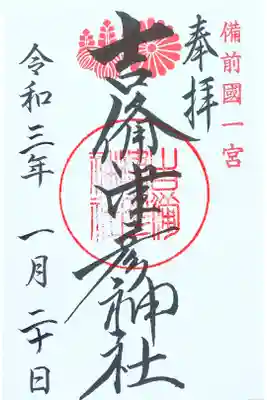 備前國一宮
奉拝
吉備津彦神社
令和三年 一月 二十日